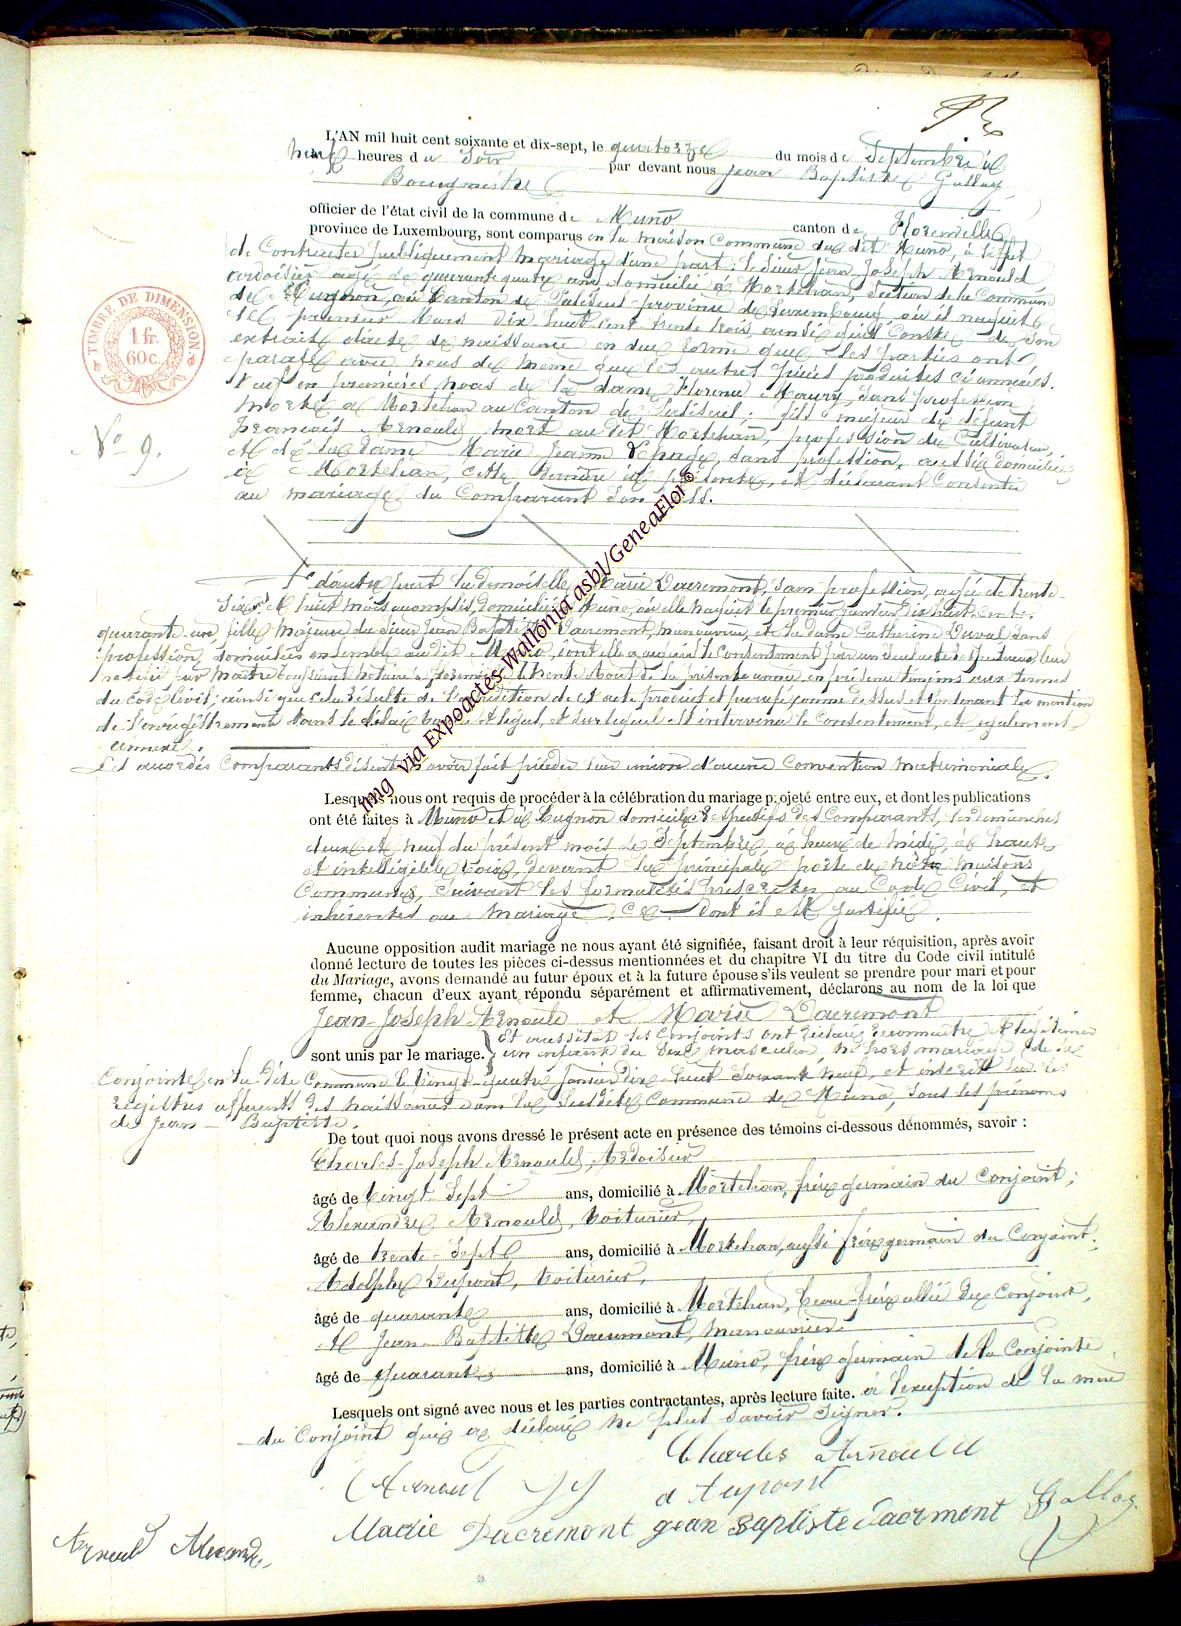 L'AN mil huit cent soixante et dix-sept, le quatorze du mois de Septembre à
neuf heures du Soir par devant nous Jean Baptiste Galloy
Bourgmestre
officier de l'état civil de la commune de Muno canton de Florenville
province de Luxembourg, sont comparus en la maison Commune du dit Muno à l'effet
de Contracter publiquement mariage d'une part: le Sieur Jean Joseph Arnould
ardoisier âgé de quarante quatre ans domicilié à Mortehan, Section de la Commune
de Cugnon, au Canton de Paliseul province de Luxembourg où il naquit
le premier Mars Dix-huit cent trente trois, ainsi qu'il Conste de son
extrait d'acte de naissance en due forme que les parties ont
parafé avec nous de même que les autres pièces produites ci annexées.
Veuf en premières noces de la dame Florence Maury, Sans profession
morte à Mortehan au Canton de Paliseul; fils majeur de défunt
François Arnould, mort au dit Mortehan, profession de Cultivateur,
et de la dame Marie Jeanne sans profession, aussi domiciliée
à Mortehan, cette dernière ici présente, et déclarant Consentir
au mariage du Comparant Son fils.
TIMBRE DE DIMENSION
1 fr.
60 c.
No 9.
Et d'autre part la demoiselle Marie Dacremont, Sans profession, agée de trente-
Six ans et huit mois accomplis, domiciliée à Muno, où elle naquit le premier Janvier Dix huit Cent
quarante-un, fille Majeure du Sieur Jean Baptiste Dacremont, Manouvrier, et la dame Catherine Duval Sans
profession, domiciliés ensemble audit Muno, dont elle a acquis le Consentement par un leur
notaire à Florenville le trente Août de la présente année, en présence témoins aux termes
du Code Civil; ainsi que cela résulte de de cet acte produit et parafé comme dessus et contenant la mention
de l'enregistrement dans le délai et légal, et sur lequel est intervenu le Consentement, et également
annexé.
Les Comparants avoir fait précéder leur union d'aucune Convention matrimoniale.
Lesquels nous ont requis de procéder à la célébration du mariage projeté entre eux, et dont les publications
ont été faites à Muno et à Cugnon domiciles respectifs des Comparants, les dimanches
deux et neuf du présent mois de Septembre, à heure de midi, à haute
et intelligible voix, devant la principale porte de nos maisons
Communes, Suivant les formalités prescrites au Code Civil, et
inhérentes au mariage, Ce dont il est justifié.
Aucune opposition audit mariage ne nous ayant été signifiée, faisant droit à leur réquisition, après avoir
donné lecture de toutes les pièces ci-dessus mentionnées et du chapitre VI du titre du Code civil intitulé
du Mariage, avons demandé au futur époux et à la future épouse s'ils veulent se prendre pour mari et pour
femme, chacun d'eux ayant répondu séparément et affirmativement, déclarons au nom de la loi que
Jean-Joseph Arnould et Marie Dacremont
sont unis par le mariage. Et aussitôt les Conjoints ont déclaré reconnaître et légitimer
un enfant du Sexe masculin, né hors mariage de la
Conjointe en la dite Commune le vingt-quatre Janvier Dix-huit Soixante neuf, et inscrit sur les
registres afférents des naissances dans la Susdite Commune de Muno, Sous les prénoms
de Jean-Baptiste.
De tout quoi nous avons dressé le présent acte en présence des témoins ci-dessous dénommés, savoir :
Charles-Joseph Arnould, Ardoisier
âgé de Vingt Sept ans, domicilié à Mortehan, frère germain du Conjoint;
Alexandre Arnould, Voiturier,
âgé de trente-Sept ans, domicilié à Mortehan, aussi frère germain du Conjoint.
Adolphe Dupont, Voiturier,
âgé de quarante ans, domicilié à Mortehan, beau-frère allié du Conjoint,
et Jean-Baptiste Dacremont, Manouvrier
âgé de quarante ans, domicilié à Muno, frère germain de la Conjointe
Lesquels ont signé avec nous et les parties contractantes, après lecture faite. à l'exception de la mère
du Conjoint qui a déclaré ne plus Savoir Signer.
Charles Arnould
Arnoul JJ a Dupont
Marie Dacremont Jean Baptiste Dacrmont Galloy
Arnoul Alexandre
img via Expoactes-Wallonia asbl/GeneaFlor©